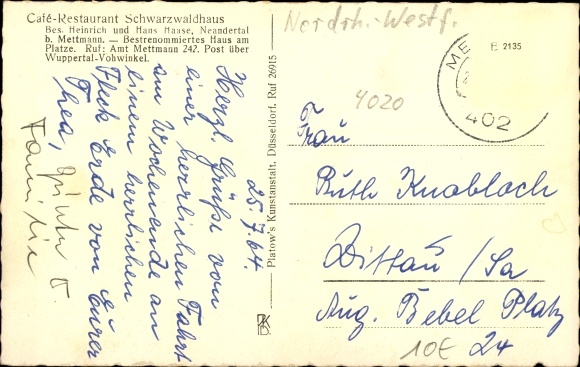 Café-Restaurant Schwarzwaldhaus
Bes. Heinrich und Hans Haase, Neandertal
b. Mettmann. — Bestrenommiertes Haus am
Platze. Ruf: Amt Mettmann 242. Post über
Wuppertal-Vohwinkel.
25.7.64.
Herzl. Grüße von
einer herrlichen Fahrt
am Wochenende an
einem herrlichen
Fleck Erde von Eurer
Thea, Günter u.
Familie
Platow's Kunstanstalt, Düsseldorf, Ruf 26915
Nordrh.-Westf.
E 2135
ME
402
4020
Frau
Ruth Knobloch
Zittau/Sa
Aug. Bebel Platz
24
10E